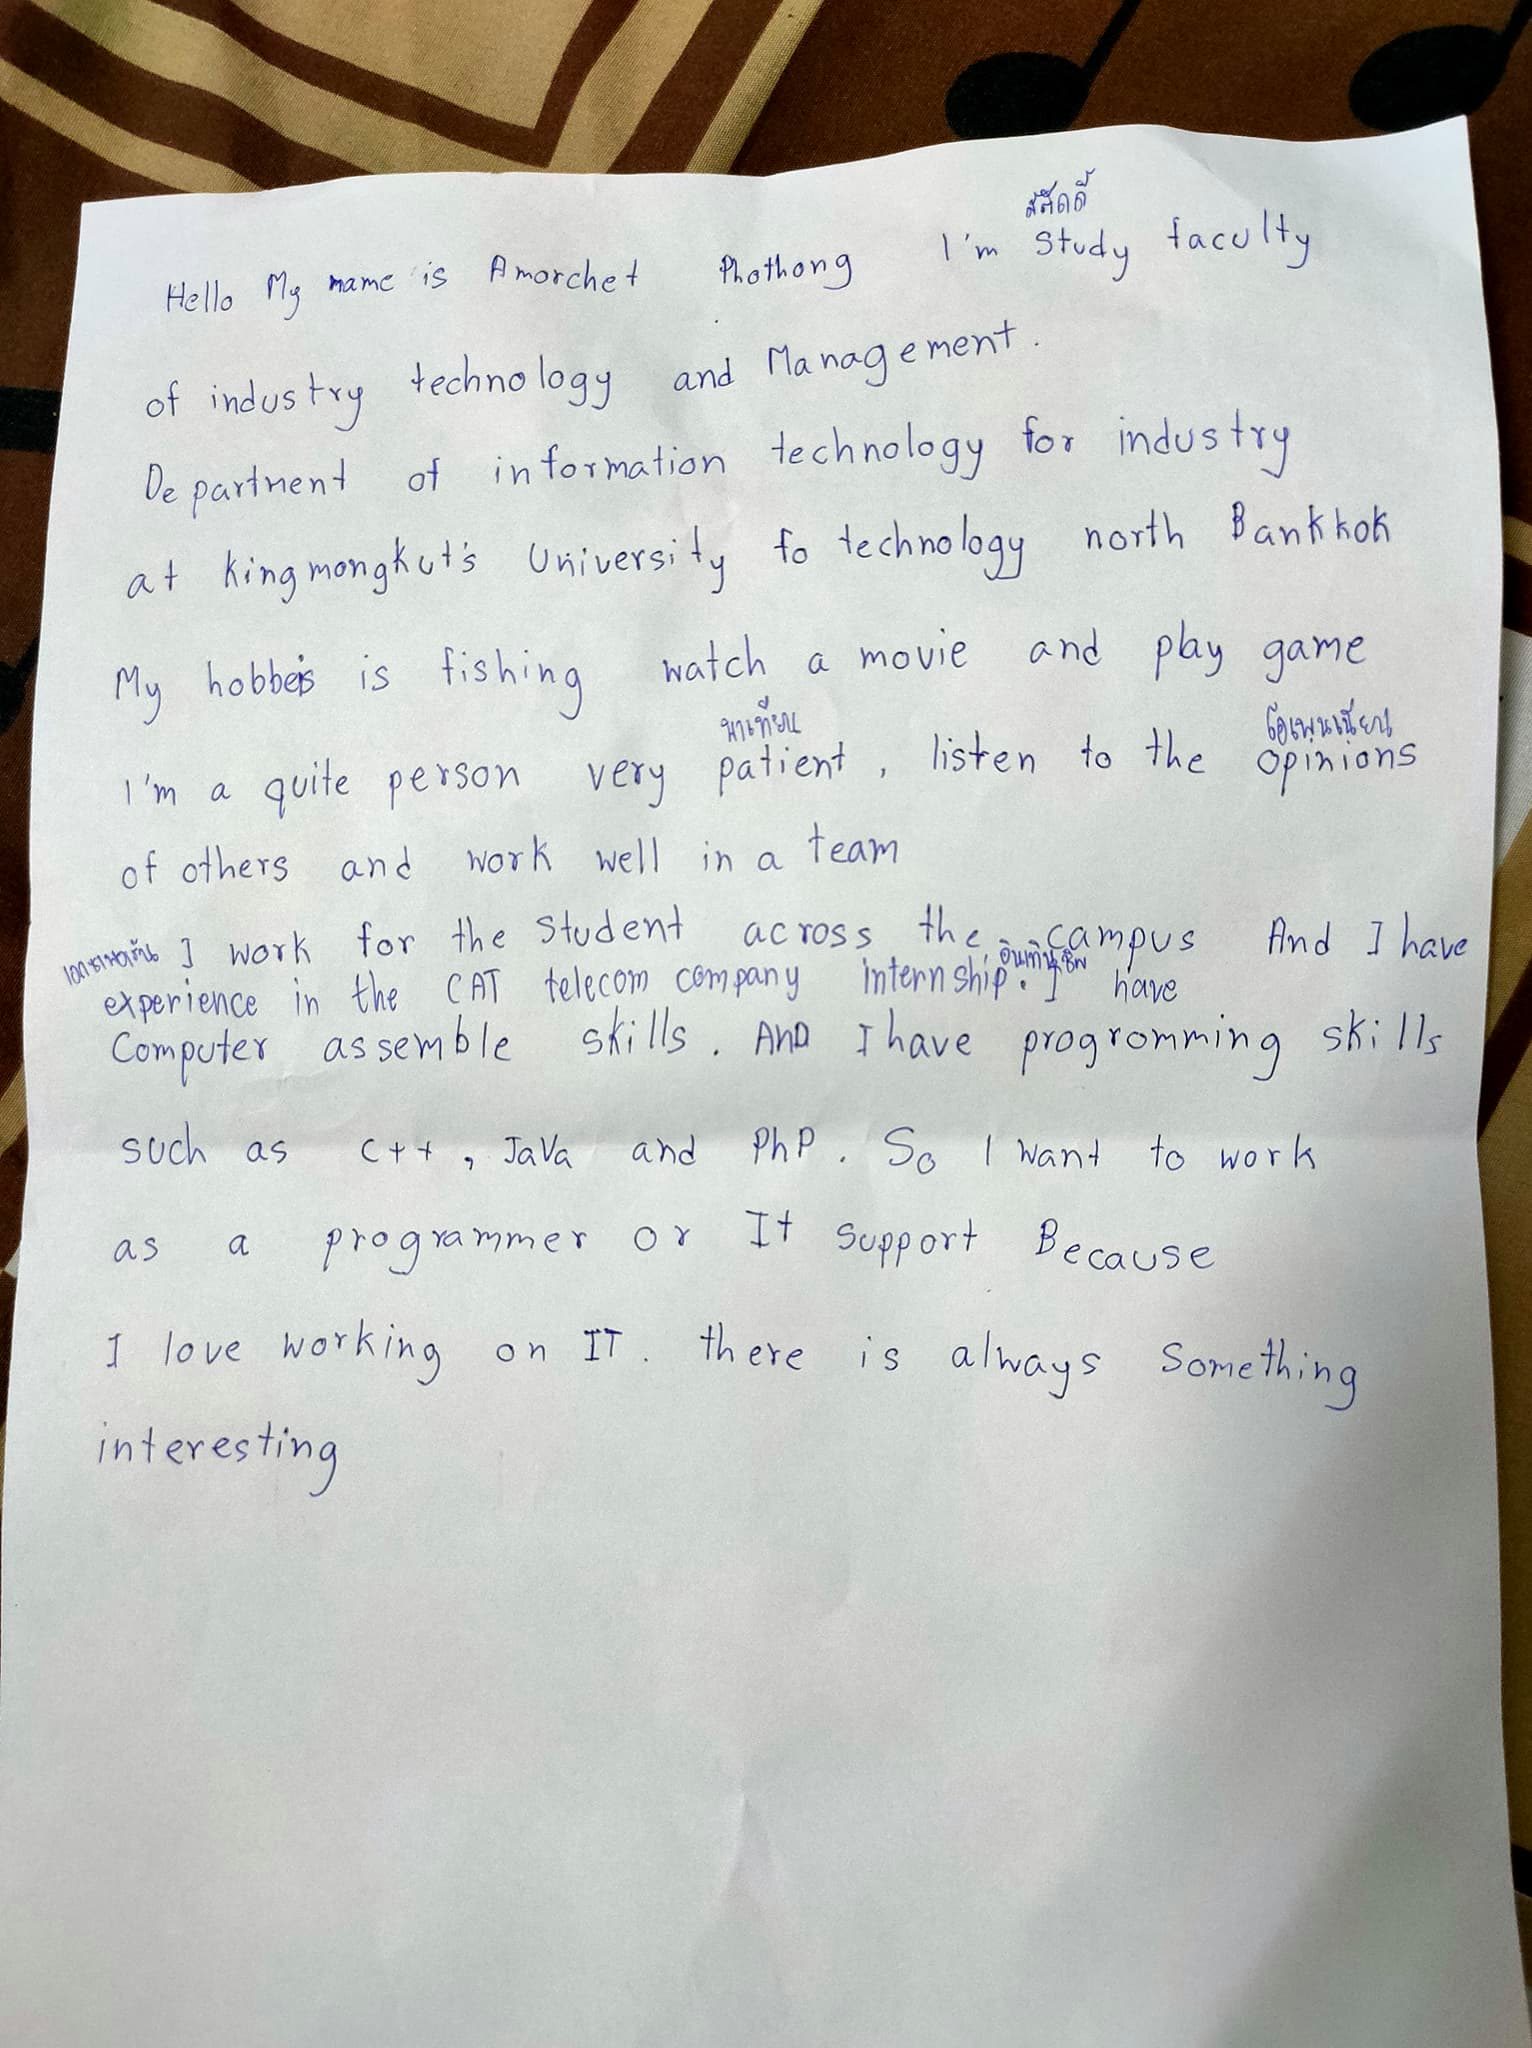 สตัดดี้
Hello My name is Amorchet Phothong I'm Study faculty
of industry technology and Management.
Department of information technology for industry
at kingmongkut's University fo technology north Bankkok
My hobbeis is fishing watch a movie and play game
พาเทียน โอเพนเนียน
I'm a quite person very patient, listen to the opinions
of others and work well in a team
I work for the student across the campus And I have
อินเทินชิพ
experience in the CAT telecom company internship. I have
Computer assemble skills. AND I have progromming skills
such as C++, JaVa and PhP. So I want to work
as a programmer or It support Because
I love working on IT. there is always Something
interesting